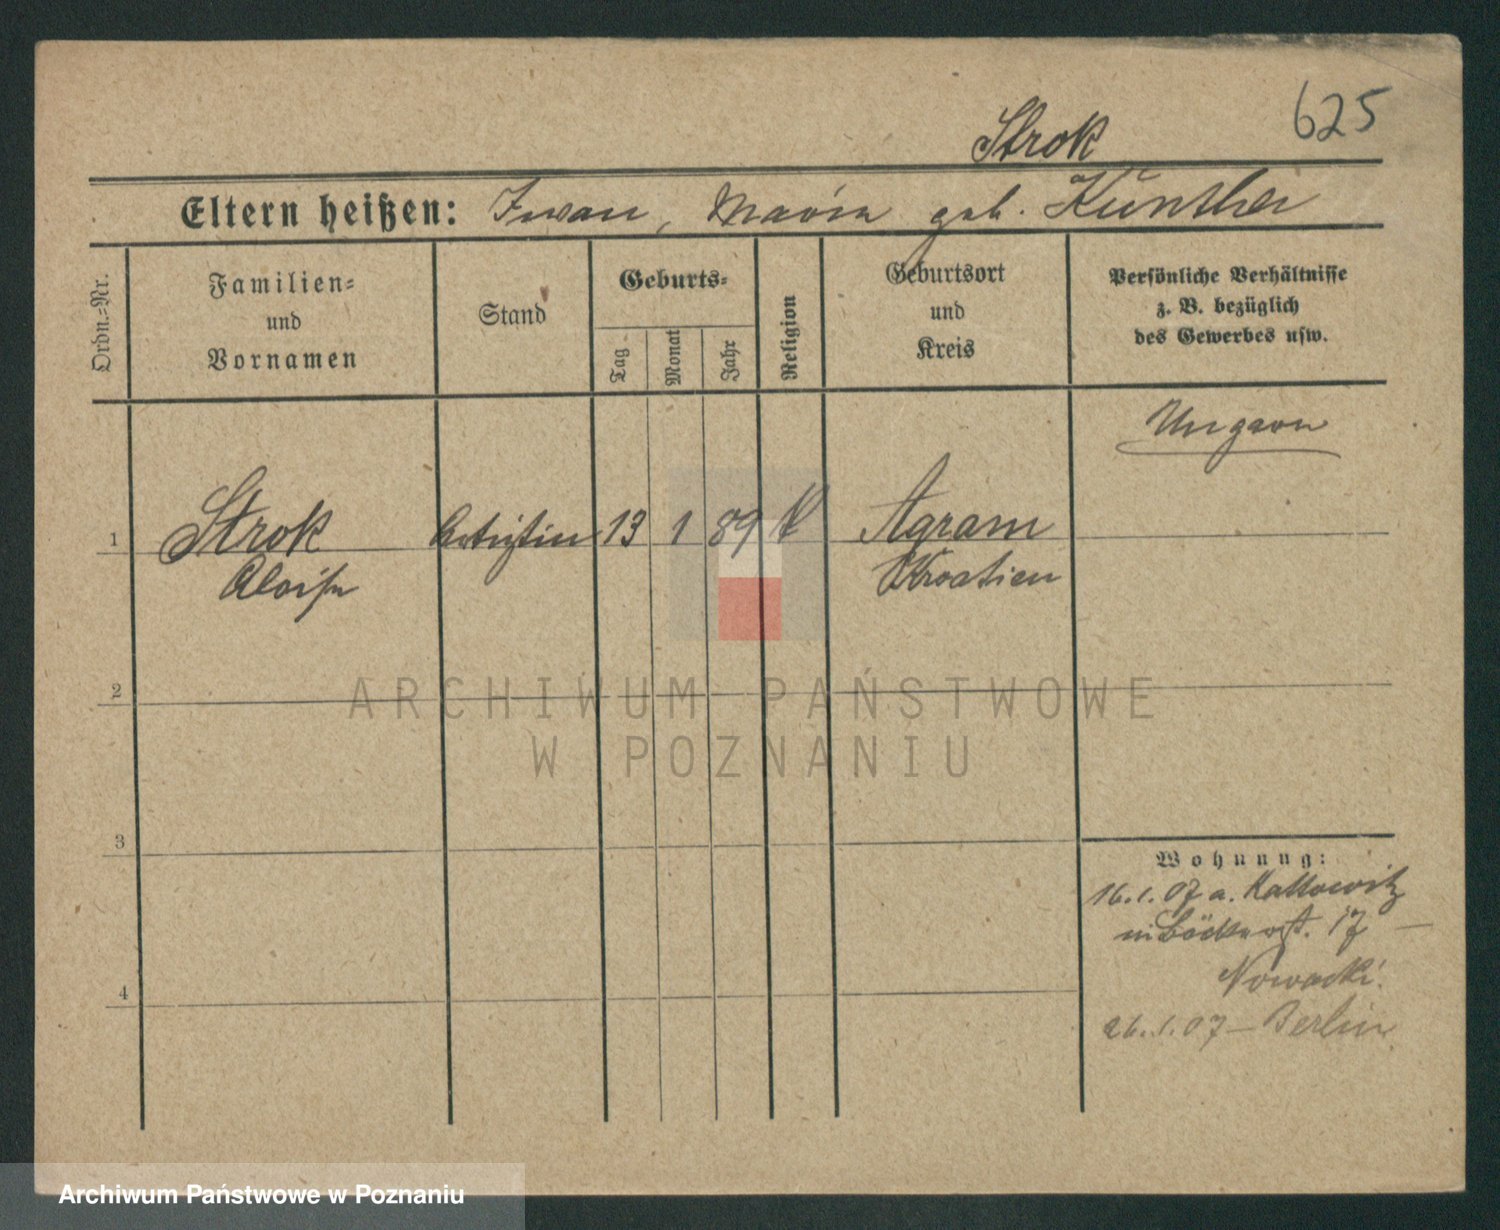 625
Strok
Eltern heißen: Iwan, Maria geb. Künther
Ordn.-Nr.
Familien-
und
Vornamen
Stand
Geburts-
Tag
Monat
Jahr
Religion
Geburtsort
und
Kreis
Persönliche Verhältnisse
z. B. bezüglich
des Gewerbes usw.
Ungarn
1 Strok Artistin 13 1 89 K Agram
Aloisia Kroatien
2
ARCHIWUM PAŃSTWOWE
W POZNANIU
3
Wohnung:
16.1.07 a. Kattowitz
Bäckerst. 17 —
Nowacki.
4
26.1.07 — Berlin
Archiwum Państwowe w Poznaniu